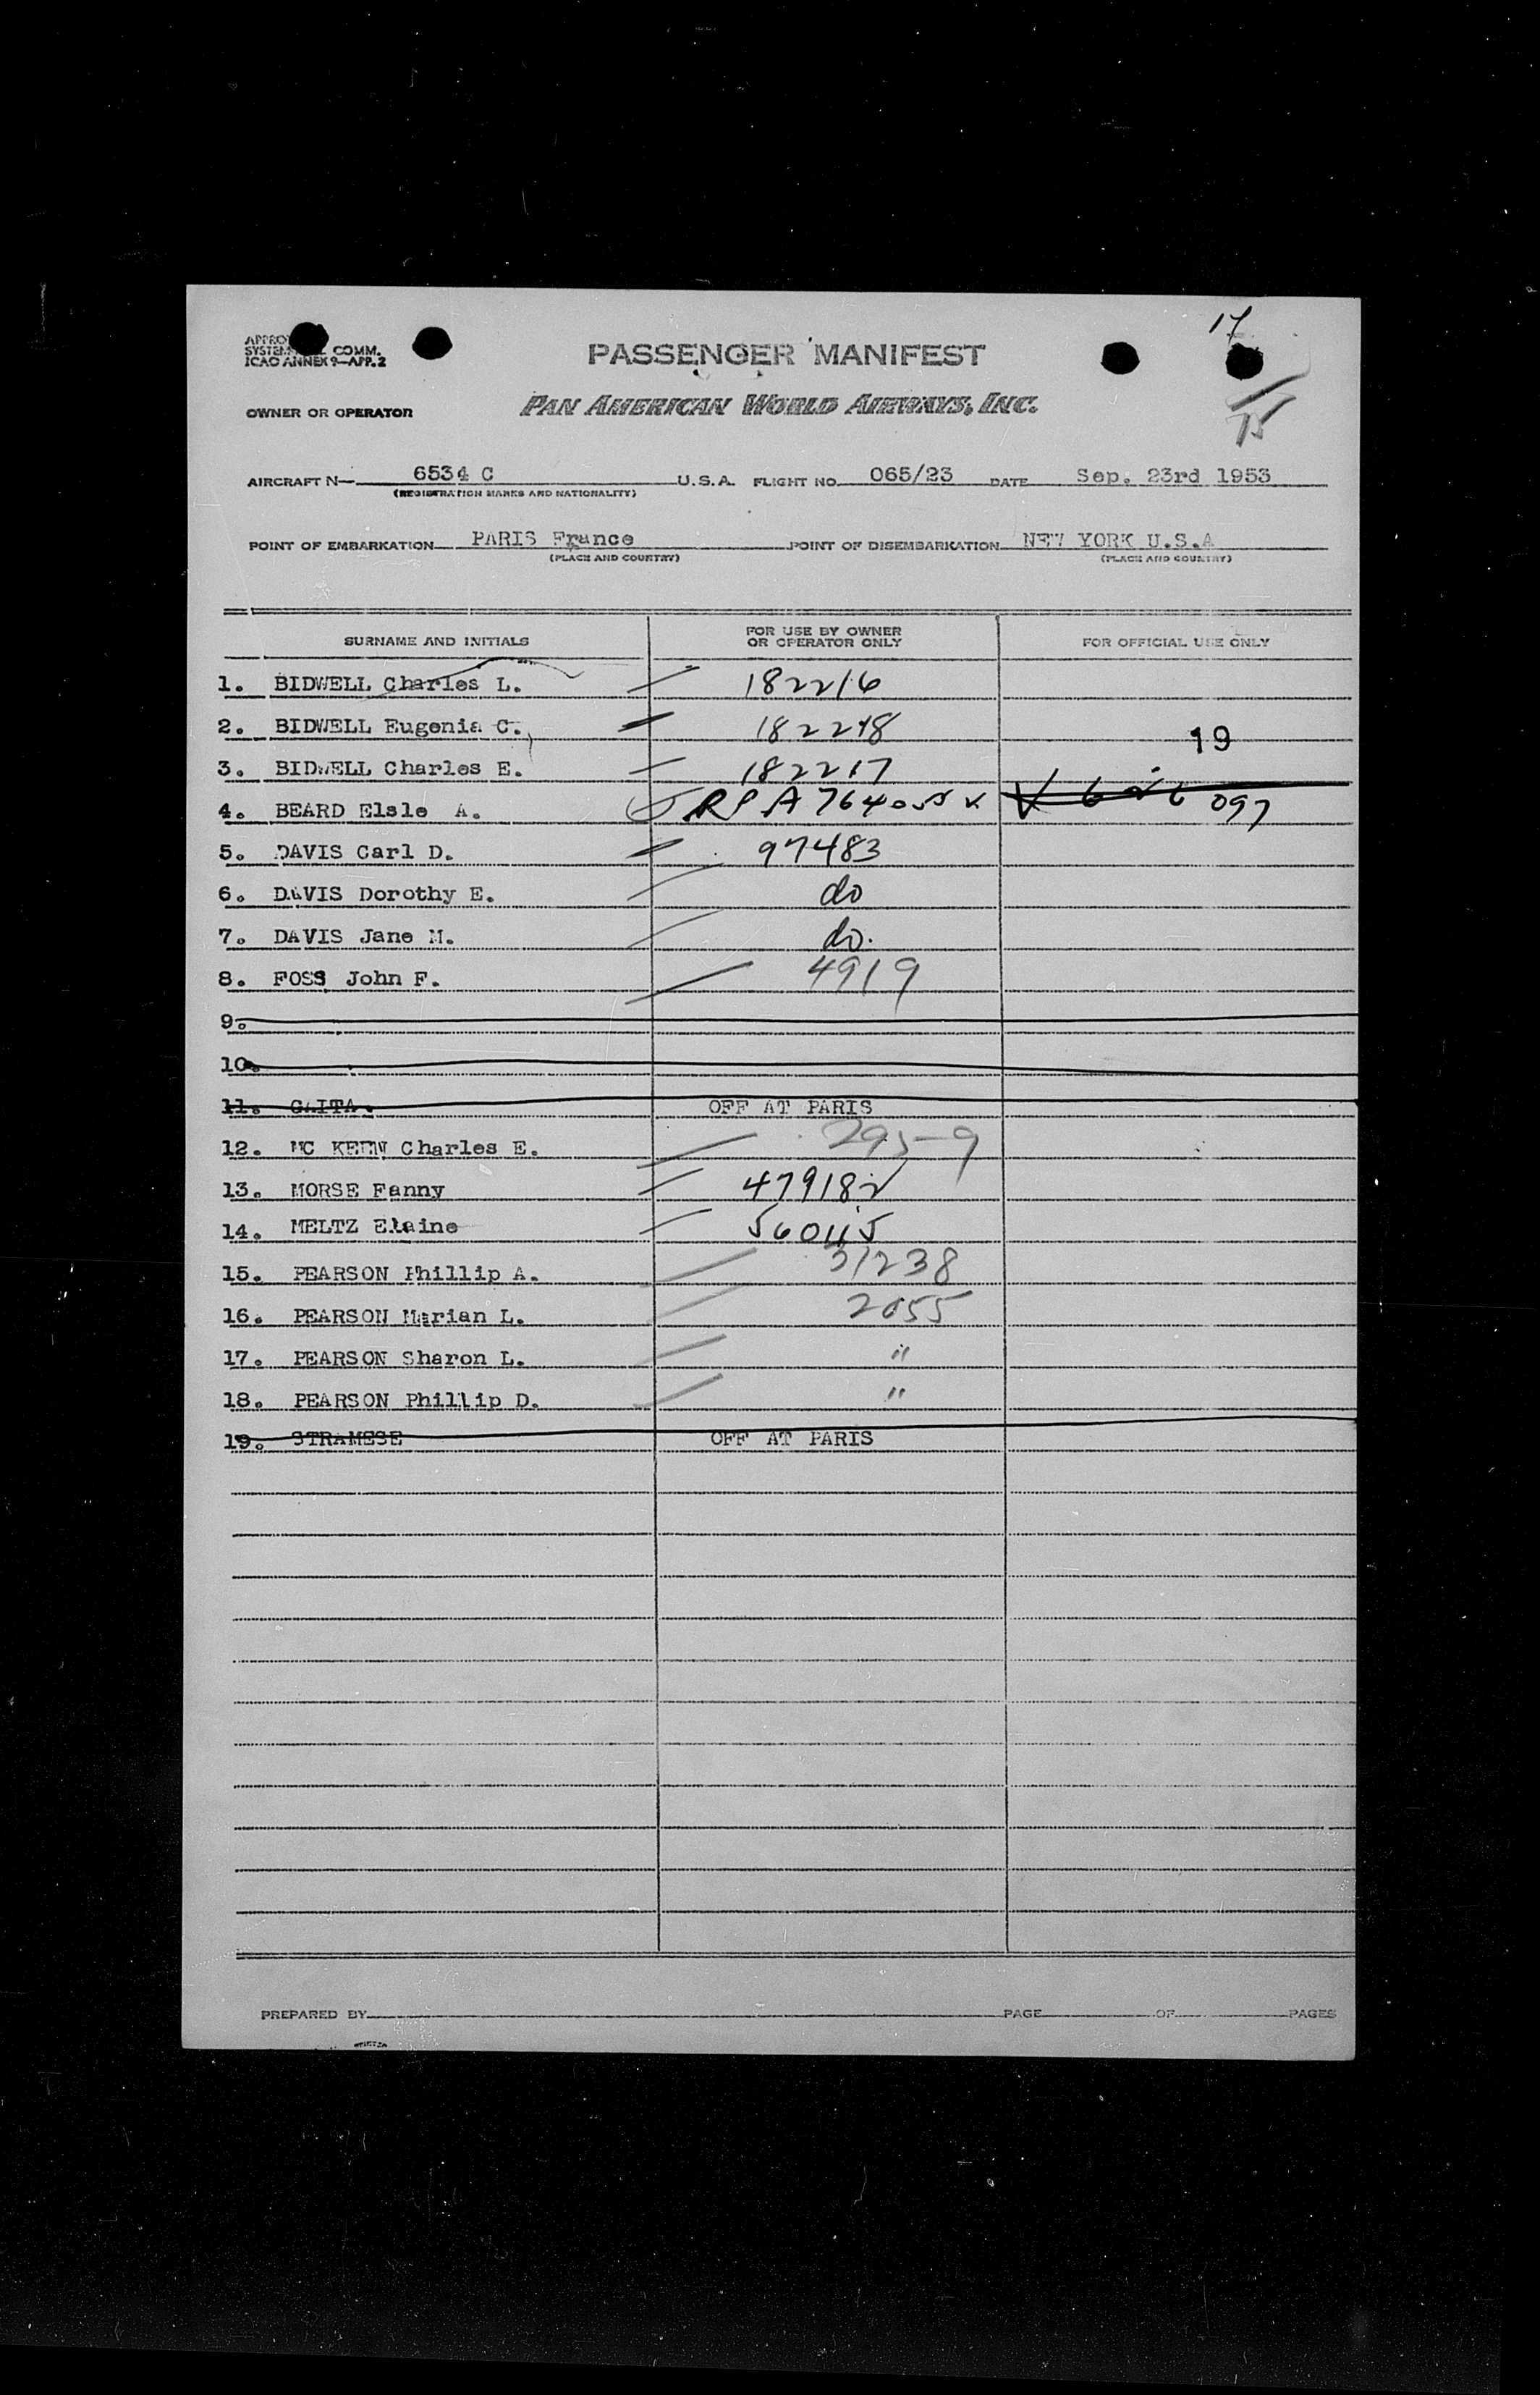 17
APPRO
SYSTEM COMM.
ICAO ANNEX 9—APP. 2
PASSENGER MANIFEST
OWNER OR OPERATOR PAN AMERICAN WORLD AIRWAYS, INC.
15
AIRCRAFT N— 6534 C U.S.A. FLIGHT NO. 065/23 DATE Sep. 23rd 1953
(REGISTRATION MARKS AND NATIONALITY)
POINT OF EMBARKATION PARIS France POINT OF DISEMBARKATION NEW YORK U.S.A
(PLACE AND COUNTRY) (PLACE AND COUNTRY)
SURNAME AND INITIALS FOR USE BY OWNER OR OPERATOR ONLY FOR OFFICIAL USE ONLY
1. BIDWELL Charles L. 182216
2. BIDWELL Eugenia C. 182218 19
3. BIDWELL Charles E. 182217
4. BEARD Elsie A. 097
5. DAVIS Carl D. 97483
6. DAVIS Dorothy E. do
7. DAVIS Jane M. do.
8. FOSS John F. 4919
9.
10.
11. GAITA. OFF AT PARIS
12. MC KEEN Charles E. 2959
13. MORSE Fanny 479182
14. MELTZ Elaine 560115
15. PEARSON Phillip A. 31238
16. PEARSON Marian L. 2055
17. PEARSON Sharon L. "
18. PEARSON Phillip D. "
19. STRAMESE OFF AT PARIS
PREPARED BY PAGE OF PAGES